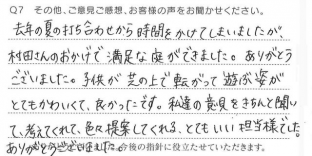 Q7 その他、ご意見ご感想、お客様の声をお聞かせください。
去年の夏の打ち合わせから時間をかけてしまいましたが、
村田さんのおかげで満足な庭ができました。ありがとう
ございました。子供が芝の上で転がって遊ぶ姿が
とてもかわいくて、良かったです。私達の意見をきちんと聞い
て、考えてくれて、色々提案してくれる、とてもいい担当様でした。
ありがとうございました。今後の指針に役立たせていただきます。